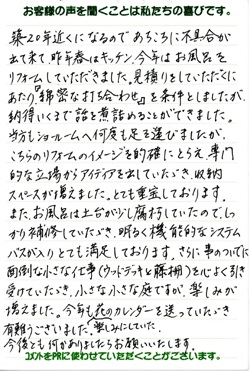 お客様の声を聞くことは私たちの喜びです。
築20年近くになるのであちこちに不具合が
出て来て昨年春はキッチン、今年はお風呂を
リフォームしていただきました。見積りをしていただくに
あたり『綿密な打ち合わせ』を条件としましたが、
納得いくまで話を煮詰めることができました。
当方もショールームへ何度も足を運びましたが、
こちらのリフォームのイメージを的確にとらえ、専門
的な立場からアイディアを出していただき、収納
スペースが増えました。とても重宝しております。
また、お風呂は土台が少し腐朽していたので、しっ
かり補修していただき、明るく機能的なシステム
バスが入りとても満足しております。さらに事のついでに
面倒な小さな仕事(ウッドデッキと藤棚)を心よく引き
受けていただき、小さな小さな庭ですが、楽しみが
増えました。今年も花のカレンダーを送っていただき
有難うございました。楽しみにしていた。
今後とも何かありましたらお願いいたします。
コメントをPRに使わせていただくことがございます。